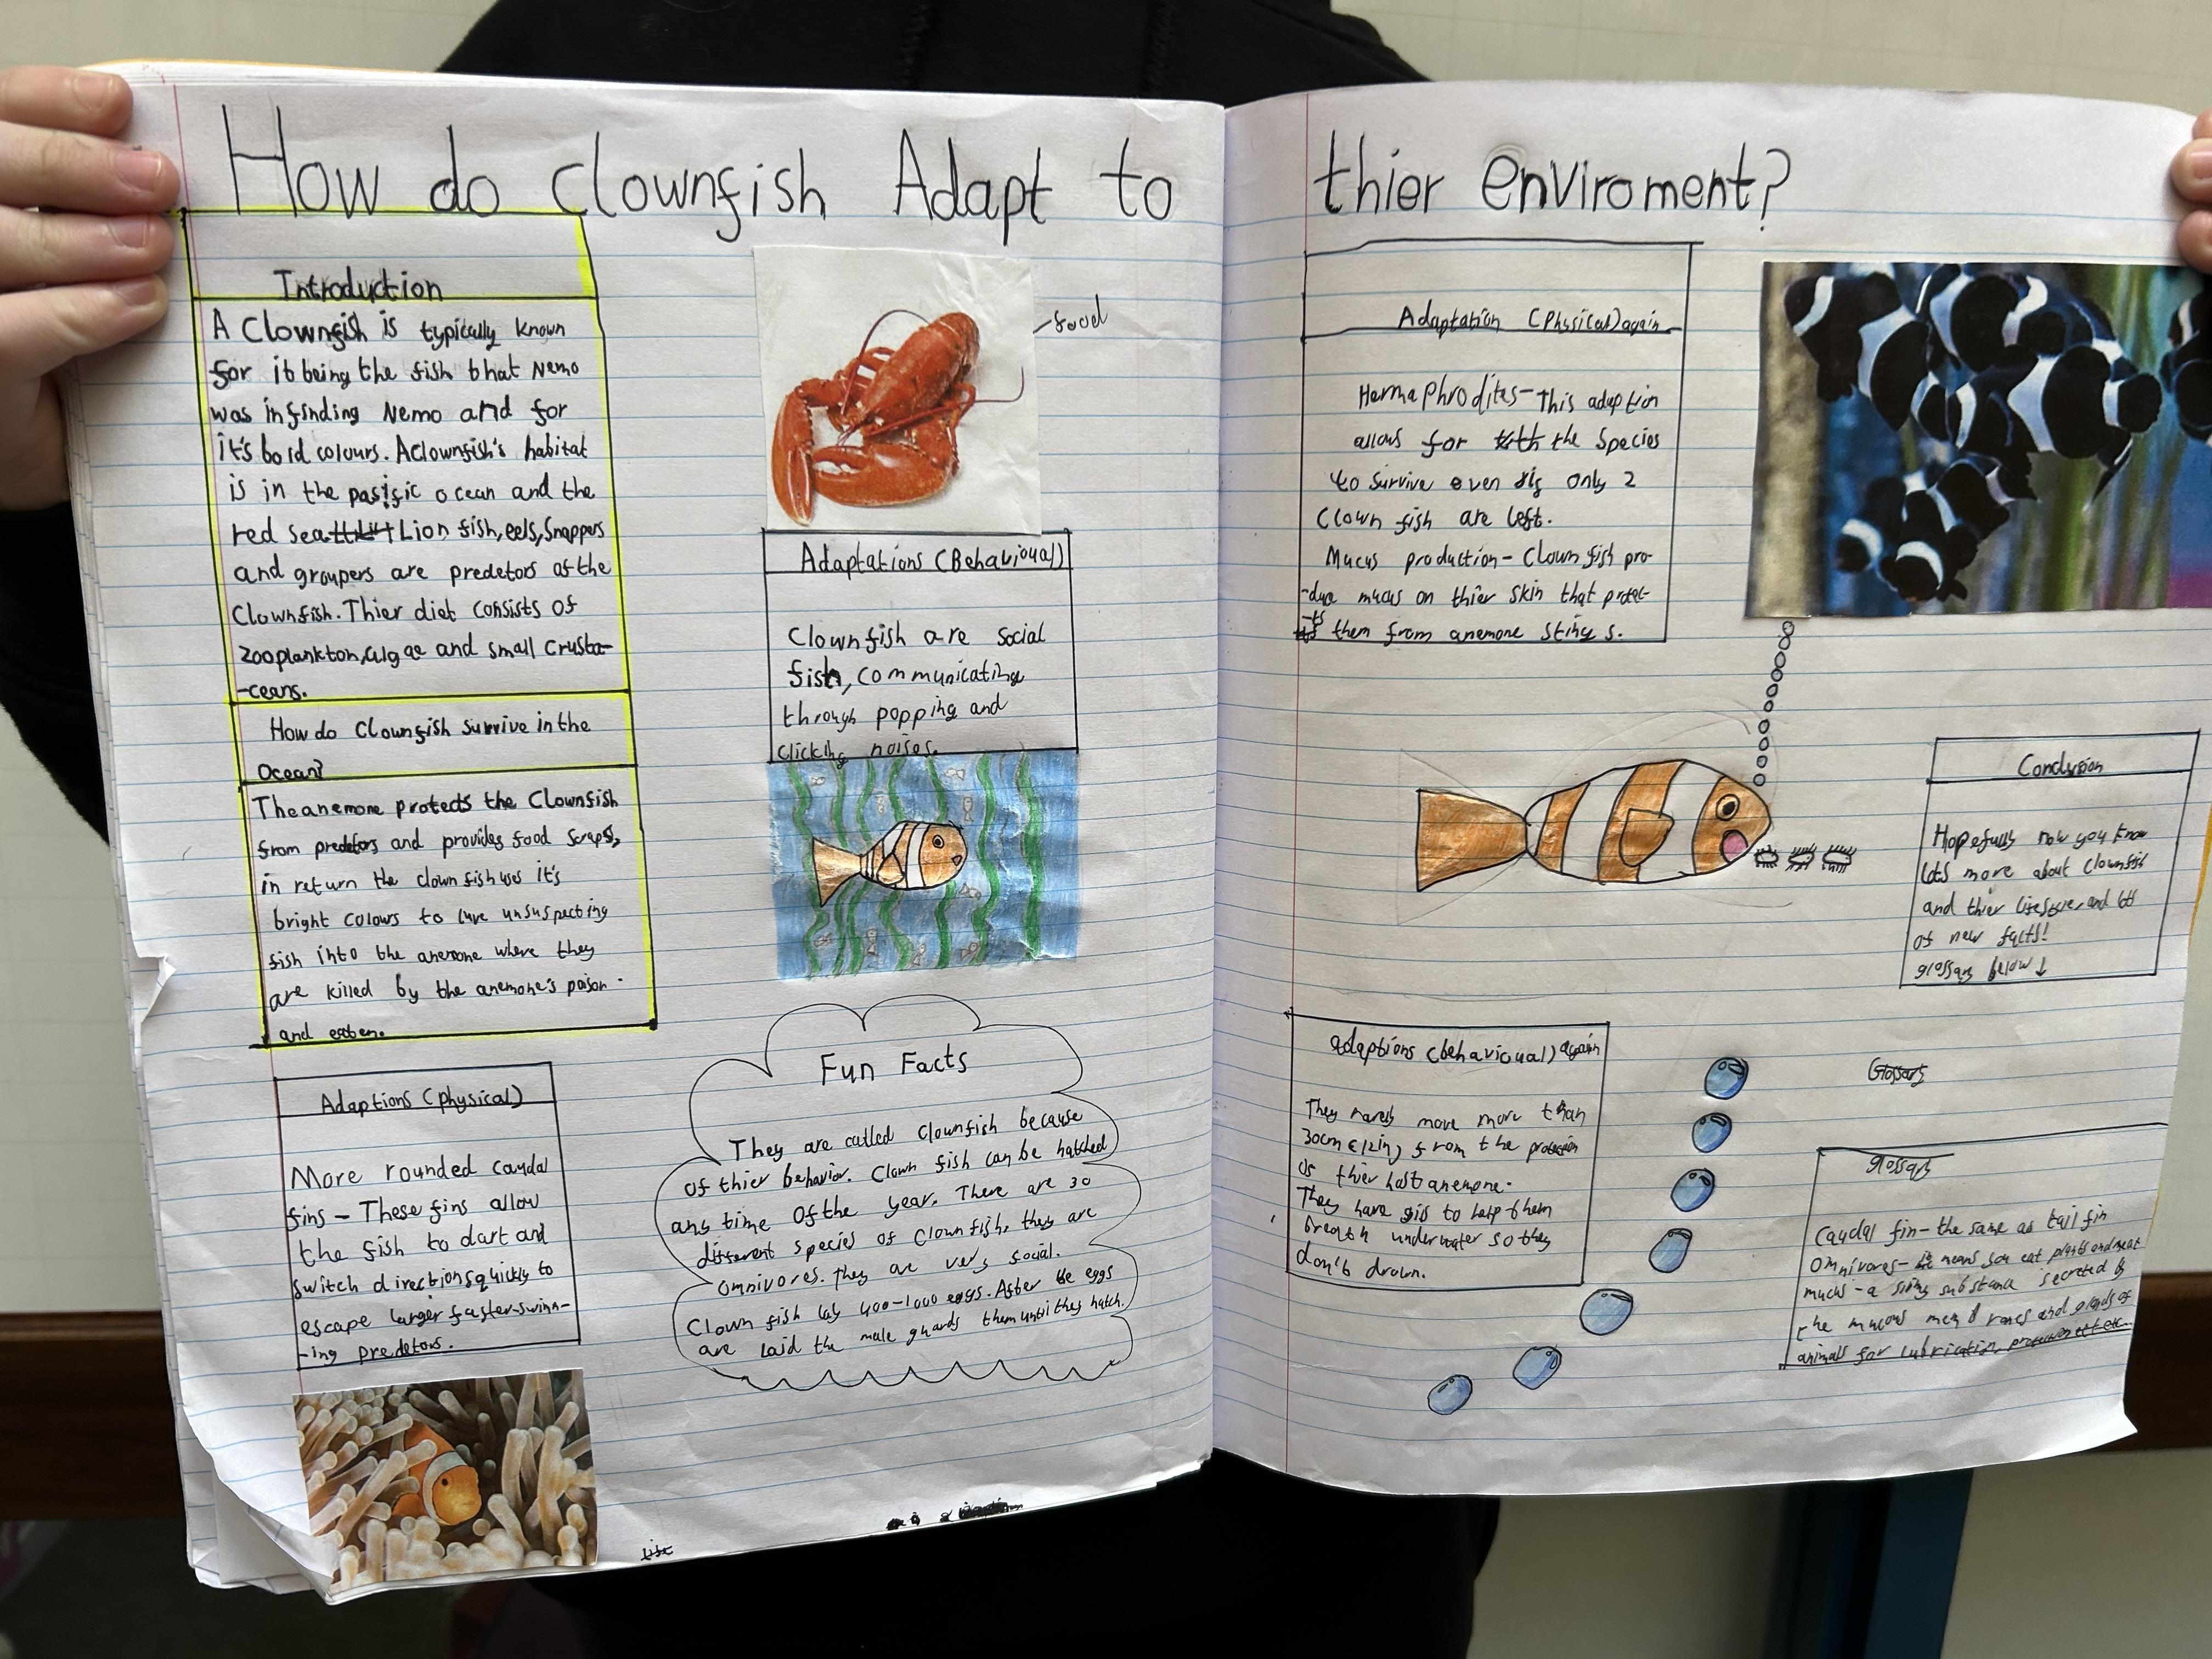 How do clownfish Adapt to thier enviroment?
Introduction
A Clownfish is typically known
for it being the fish that Nemo
was in finding Nemo and for
it's bold colours. A clownfish's habitat
is in the pasific ocean and the
red sea Lion fish, eels, Snappers
and groupers are predetors of the
Clownfish. Thier diet consists of
zooplankton, algae and small crusta-
-ceans.
How do Clownfish survive in the
Ocean?
The anemone protects the Clownfish
from predetors and provides food scraps,
in return the clown fish uses it's
bright colours to lure unsuspecting
fish into the anemone where they
are killed by the anemone's poison.
and eaten.
Adaptions (physical)
More rounded caudal
fins - These fins allow
the fish to dart and
switch directions quickly to
escape larger faster-swimm-
-ing predetors.
life
food
Adaptations (Behavioual)
Clownfish are social
fish, communicating
through popping and
clicking noises.
Fun Facts
They are called Clownfish because
of thier behavior. Clown fish can be hatched
any time Of the year. There are 30
different species of Clownfish. they are
omnivores. They are very social.
Clown fish lay 400-1000 eggs. After the eggs
are laid the male guards them until they hatch.
Adaptation (Physical) again
Hermaphrodites - This adaption
allows for the species
to survive even if only 2
Clown fish are left.
Mucus production - Clown fish pro-
-duce mucus on thier skin that protec-
-ts them from anemone stings.
Conclusion
Hopefully now you know
lots more about clownfish
and thier lifestyle, and lots
of new facts!
glossary below ↓
adaptions (behavioual) again
They rarely move more than
30cm (12in) from the protection
of thier host anemone.
They have gils to help them
breath underwater so they
don't drown.
Glossary
glossary
Caudal fin - the same as tail fin
Omnivores - it means you eat plants and meat
mucus - a slimy substance secreted by
the mucous membranes and glands of
animals for lubrication, protection etc...